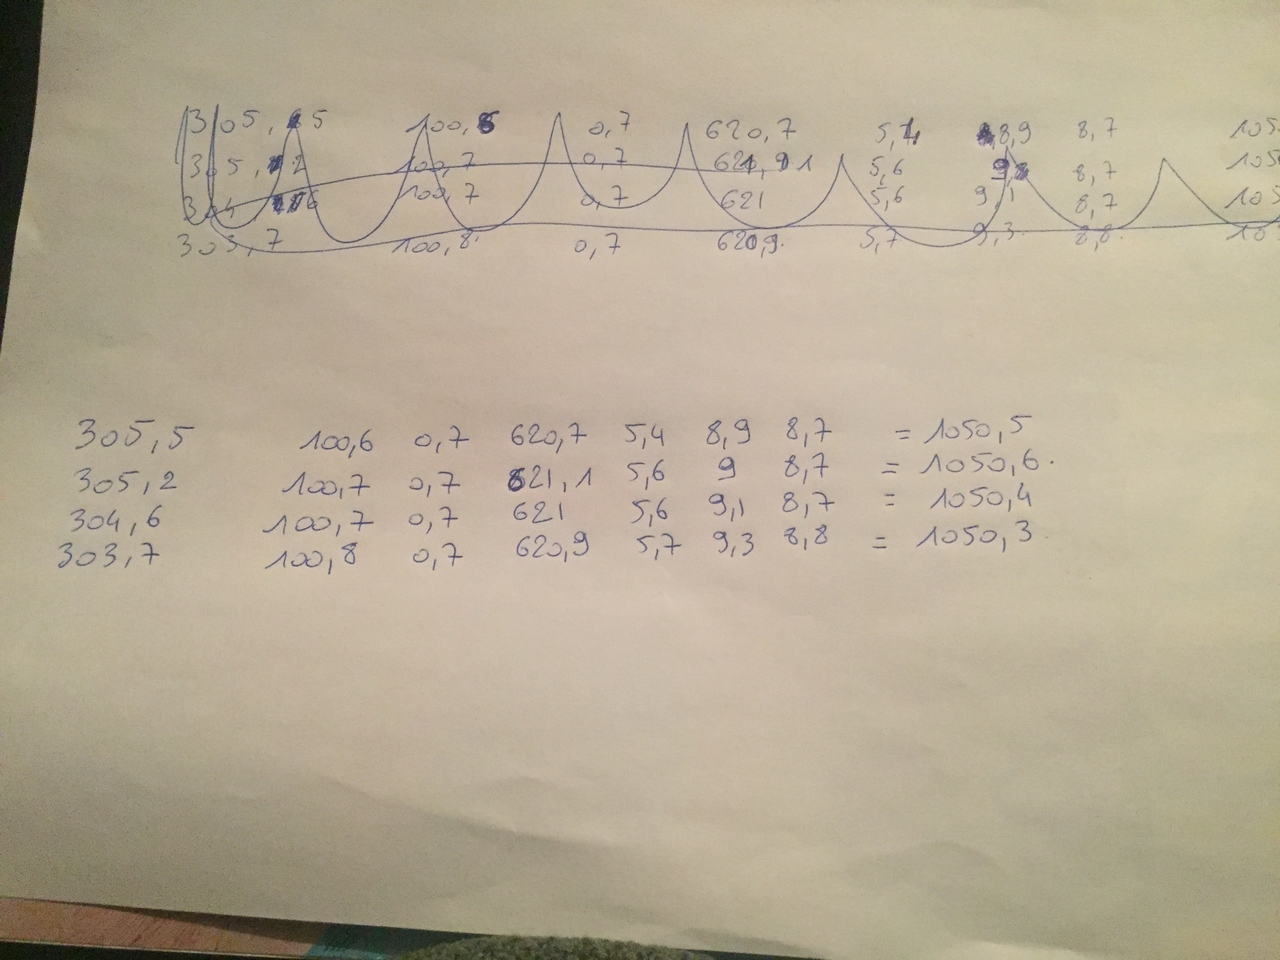 305,5 100,6 0,7 620,7 5,4 8,9 8,7 105
305,2 100,7 0,7 621,1 5,6 9 8,7 105
304,6 100,7 0,7 621 5,6 9,1 8,7 105
303,7 100,8 0,7 620,9 5,7 9,3 8,8 10
305,5 100,6 0,7 620,7 5,4 8,9 8,7 = 1050,5
305,2 100,7 0,7 621,1 5,6 9 8,7 = 1050,6
304,6 100,7 0,7 621 5,6 9,1 8,7 = 1050,4
303,7 100,8 0,7 620,9 5,7 9,3 8,8 = 1050,3